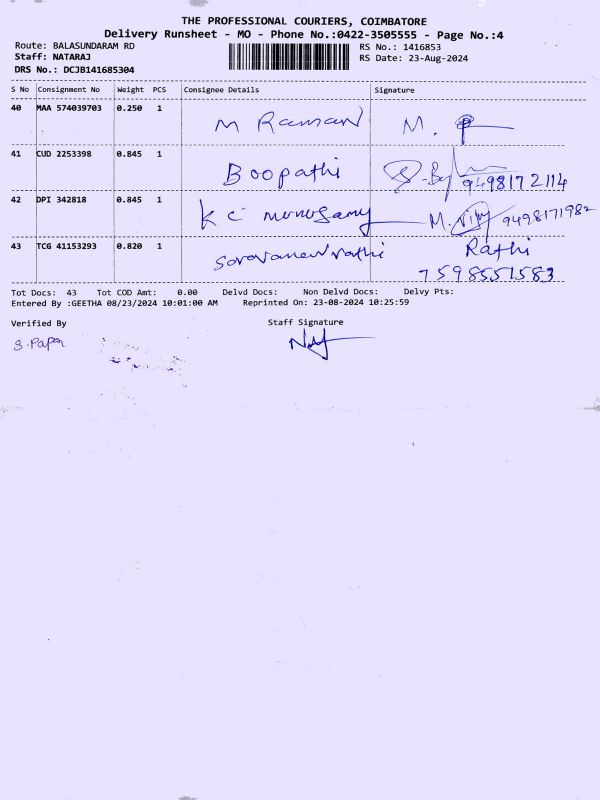 THE PROFESSIONAL COURIERS, COIMBATORE
Delivery Runsheet - MO - Phone No.:0422-3505555 - Page No.:4
Route: BALASUNDARAM RD
RS No.: 1416853
Staff: NATARAJ
RS Date: 23-Aug-2024
DRS No.: DCJB141685304
S No Consignment No Weight PCS Consignee Details Signature
40 MAA 574039703 0.250 1 M Raman M.
41 CUD 2253398 0.845 1 Boopathi 9498172114
42 DPI 342818 0.845 1 K C munusamy M. Vijy 9498171982
43 TCG 41153293 0.820 1 Rathi
7598551583
Tot Docs: 43 Tot COD Amt: 0.00 Delvd Docs: Non Delvd Docs: Delvy Pts:
Entered By :GEETHA 08/23/2024 10:01:00 AM Reprinted On: 23-08-2024 10:25:59
Verified By Staff Signature